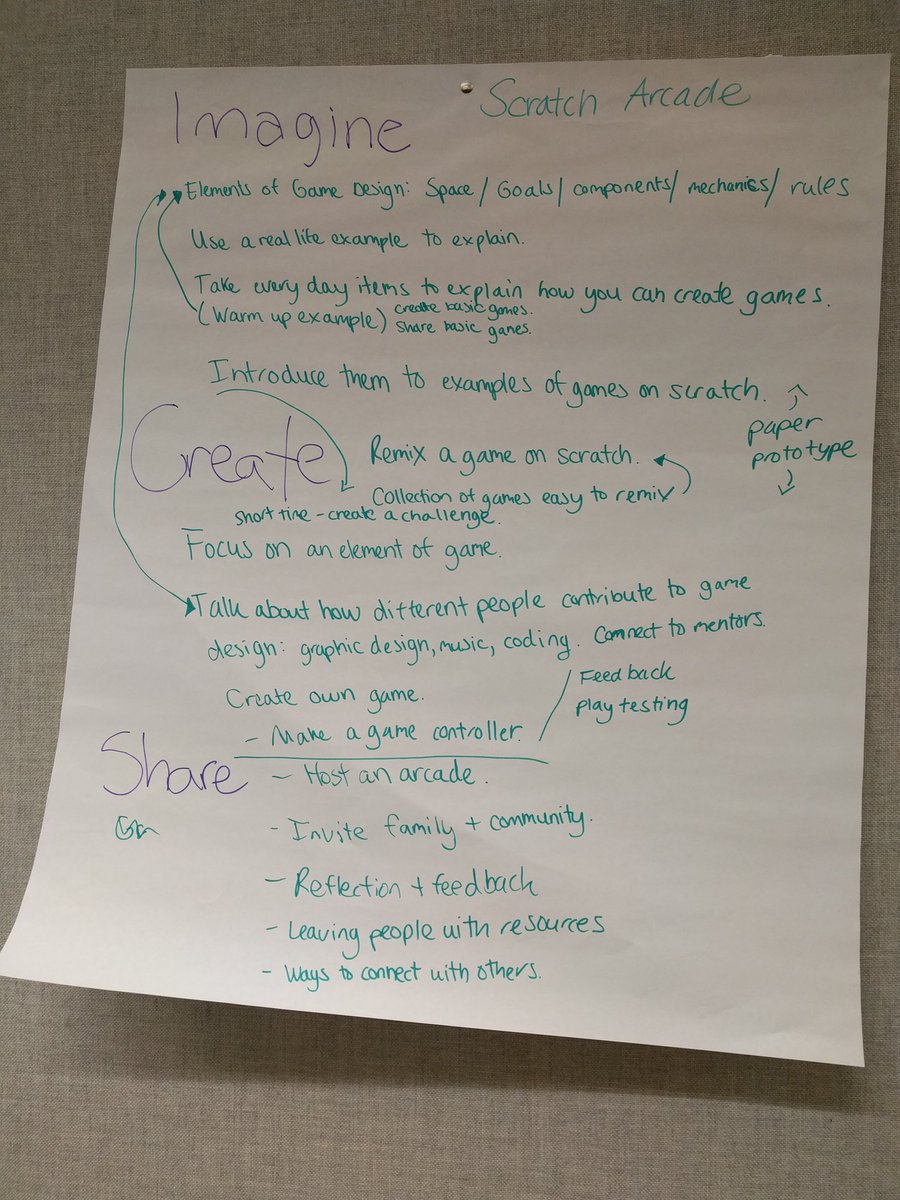 Scratch Arcade
Imagine
Elements of Game Design: Space / Goals / components / mechanics / rules
Use a real life example to explain.
Take every day items to explain how you can create games.
(Warm up example) create basic games.
share basic games.
Introduce them to examples of games on scratch.
paper
prototype
Create
Remix a game on scratch.
Collection of games easy to remix
Short time - create a challenge.
Focus on an element of game.
Talk about how different people contribute to game
design: graphic design, music, coding. Connect to mentors.
Create own game.
Feedback
Play testing
- Make a game controller.
Share
- Host an arcade.
- Invite family + community.
- Reflection + feedback
- Leaving people with resources
- Ways to connect with others.